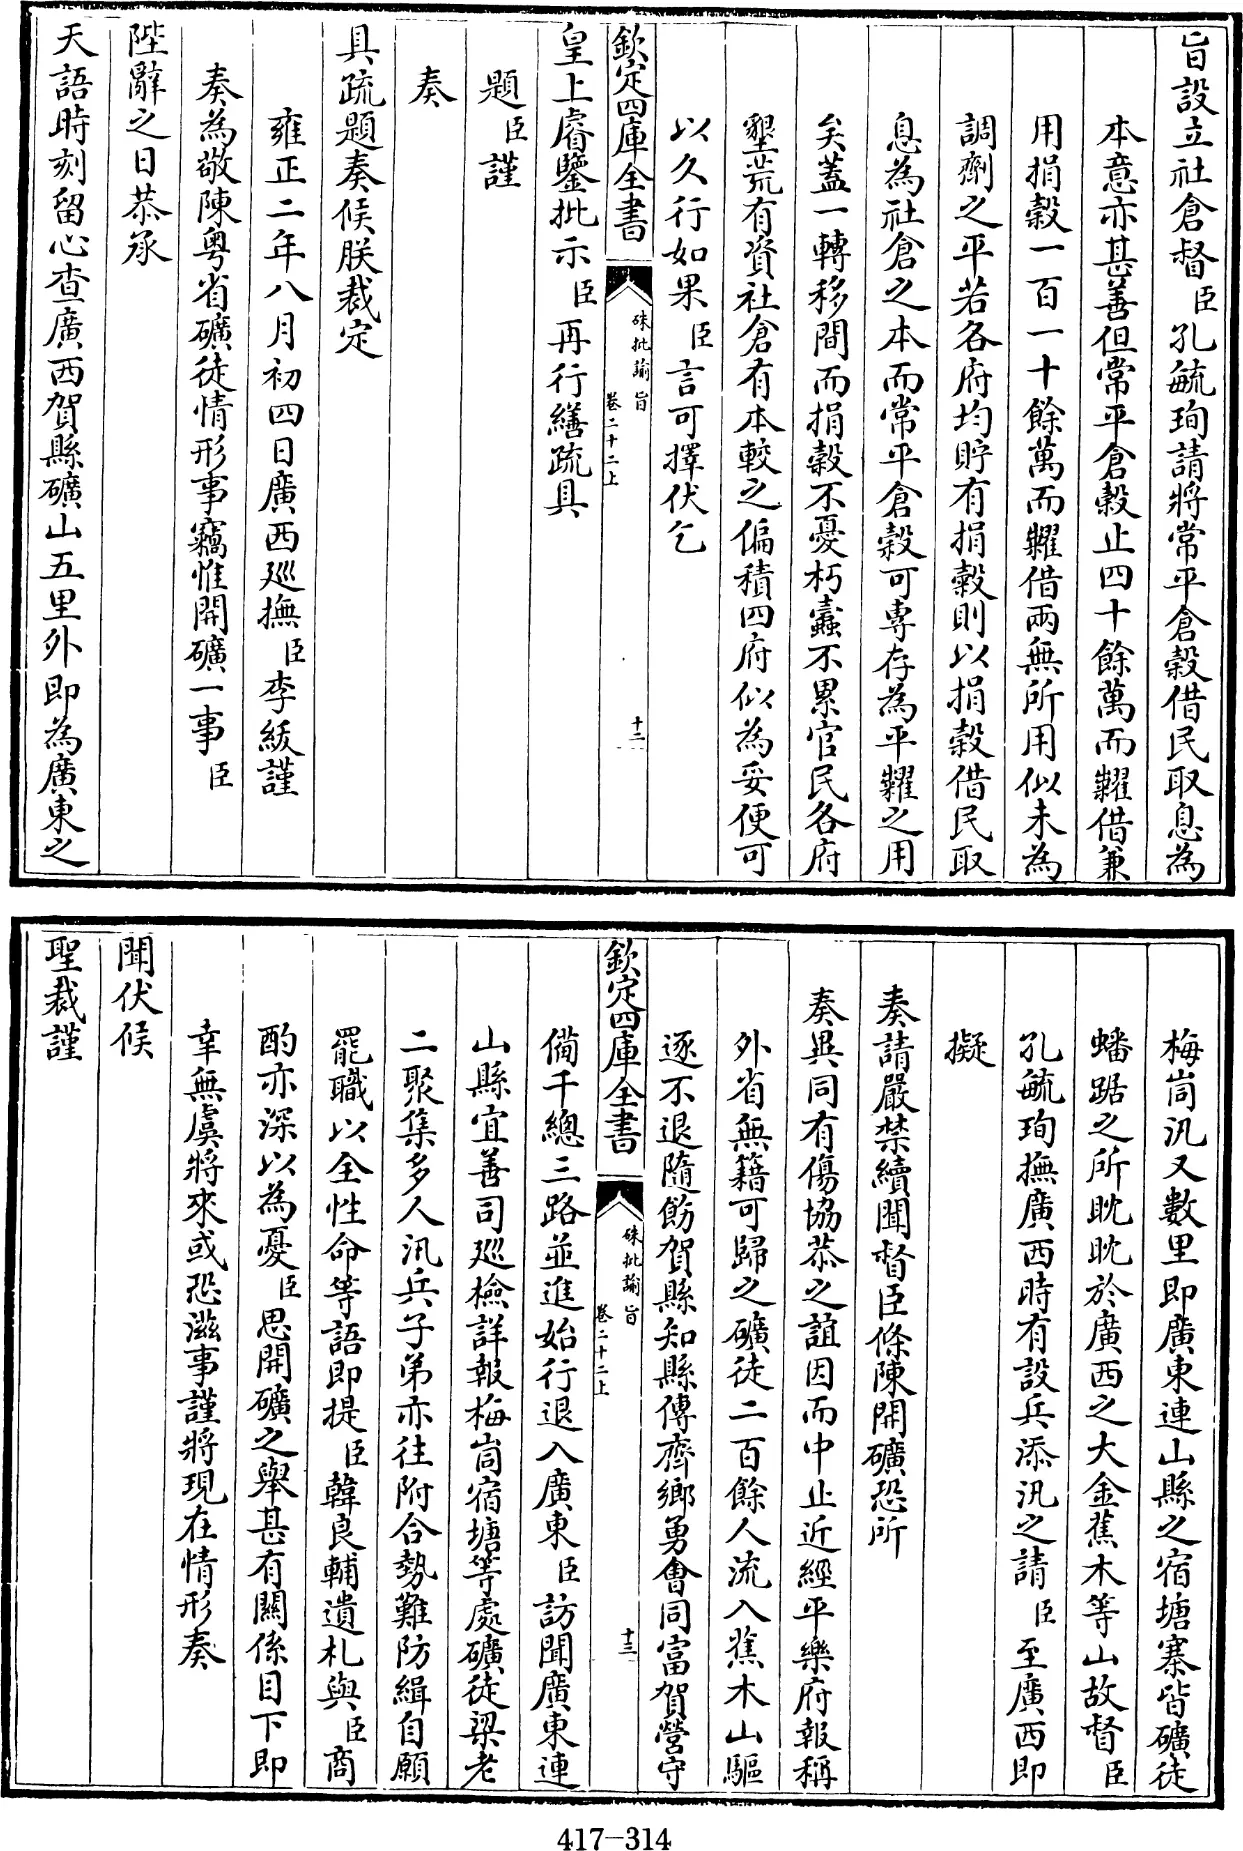 旨設立社倉督臣孔毓珣請將常平倉穀借民取息為
本意亦甚善但常平倉穀止四十餘萬而糶借兼
用捐穀一百一十餘萬而糶借兩無所用似未為
調劑之平若各府均貯有捐穀則以捐穀借民取
息為社倉之本而常平倉穀可專存為平糶之用
矣蓋一轉移間而捐穀不憂朽蠹不累官民各府
墾荒有資社倉有本較之偏積四府似為妥便可
以久行如果臣言可擇伏乞
欽定四庫全書
硃批諭旨
卷二十二上
十二
皇上睿鑒批示臣再行繕疏具
題臣謹
奏
具疏題奏候朕裁定
雍正二年八月初四日廣西廵撫臣李紱謹
奏為敬陳粤省礦徒情形事竊惟開礦一事臣
陛辭之日恭承
天語時刻留心查廣西賀縣礦山五里外即為廣東之
梅峝汛又數里即廣東連山縣之宿塘寨皆礦徒
蟠踞之所眈眈於廣西之大金蕉木等山故督臣
孔毓珣撫廣西時有設兵添汛之請臣至廣西即
擬
奏請嚴禁續聞督臣條陳開礦恐所
奏異同有傷協恭之誼因而中止近經平樂府報稱
外省無籍可歸之礦徒二百餘人流入蕉木山驅
逐不退隨飭賀縣知縣傳齊鄉勇會同富賀營守
欽定四庫全書
硃批諭旨
卷二十二上
十三
備千總三路並進始行退入廣東臣訪聞廣東連
山縣宜善司廵檢詳報梅峝宿塘等處礦徒梁老
二聚集多人汛兵子弟亦往附合勢難防緝自願
罷職以全性命等語即提臣韓良輔遺札與臣商
酌亦深以為憂臣思開礦之舉甚有關係目下即
幸無虞將來或恐滋事謹將現在情形奏
聞伏候
聖裁謹
417-314